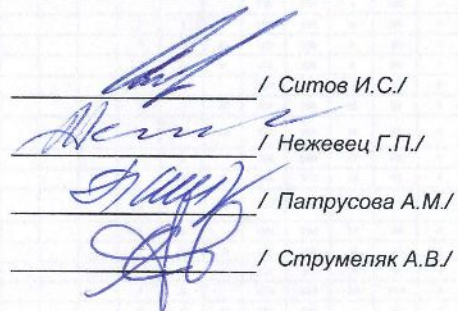 / Ситов И.С./
/ Нежевец Г.П./
/ Патрусова А.М./
/ Струмеляк А.В./